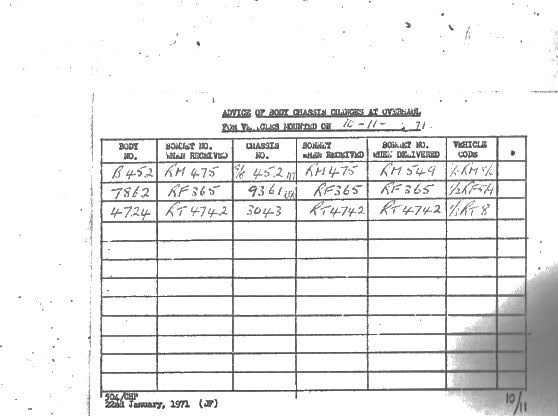 ADVICE OF BODY CHASSIS CHANGES AT OVERHAUL
FOR VEHICLES MOUNTED ON 10-11- 71
BODY NO. BONNET NO. WHEN RECEIVED CHASSIS NO. BONNET WHEN RECEIVED BONNET NO. WHEN DELIVERED VEHICLE CODE
B452 RM475 452 RM475 RM549
7862 RF365 9361 RF365 RF365
4724 RT4742 3043 RT4742 RT4742 RT8
504/CHP
22nd January, 1971 (JF)
10/11